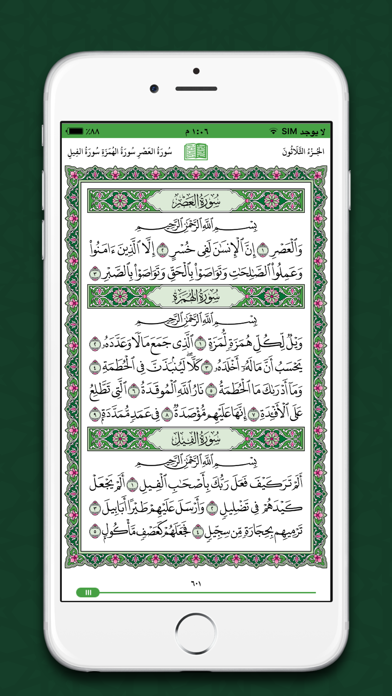 لا يوجد SIM ١:٠٦ م ٨٨٪
الجُزْءُ الثَّلَاثُونَ سُورَةُ العَصْرِ سُورَةُ الهُمَزَةِ سُورَةُ الفِيلِ
سُورَةُ الْعَصْرِ
بِسْمِ اللَّهِ الرَّحْمَٰنِ الرَّحِيمِ
وَالْعَصْرِ ١ إِنَّ الْإِنسَٰنَ لَفِى خُسْرٍ ٢ إِلَّا الَّذِينَ ءَامَنُوا
وَعَمِلُوا الصَّٰلِحَٰتِ وَتَوَاصَوْا بِالْحَقِّ وَتَوَاصَوْا بِالصَّبْرِ ٣
سُورَةُ الْهُمَزَةِ
بِسْمِ اللَّهِ الرَّحْمَٰنِ الرَّحِيمِ
وَيْلٌ لِّكُلِّ هُمَزَةٍ لُّمَزَةٍ ١ الَّذِى جَمَعَ مَالًا وَعَدَّدَهُۥ ٢
يَحْسَبُ أَنَّ مَالَهُۥٓ أَخْلَدَهُۥ ٣ كَلَّا لَيُنۢبَذَنَّ فِى الْحُطَمَةِ ٤
وَمَآ أَدْرَىٰكَ مَا الْحُطَمَةُ ٥ نَارُ اللَّهِ الْمُوقَدَةُ ٦ الَّتِى تَطَّلِعُ
عَلَى الْأَفْـِٔدَةِ ٧ إِنَّهَا عَلَيْهِم مُّؤْصَدَةٌ ٨ فِى عَمَدٍ مُّمَدَّدَةٍۭ ٩
سُورَةُ الْفِيلِ
بِسْمِ اللَّهِ الرَّحْمَٰنِ الرَّحِيمِ
أَلَمْ تَرَ كَيْفَ فَعَلَ رَبُّكَ بِأَصْحَٰبِ الْفِيلِ ١ أَلَمْ يَجْعَلْ
كَيْدَهُمْ فِى تَضْلِيلٍ ٢ وَأَرْسَلَ عَلَيْهِمْ طَيْرًا أَبَابِيلَ ٣
تَرْمِيهِم بِحِجَارَةٍ مِّن سِجِّيلٍ ٤ فَجَعَلَهُمْ كَعَصْفٍ مَّأْكُولٍۭ ٥
٦٠١